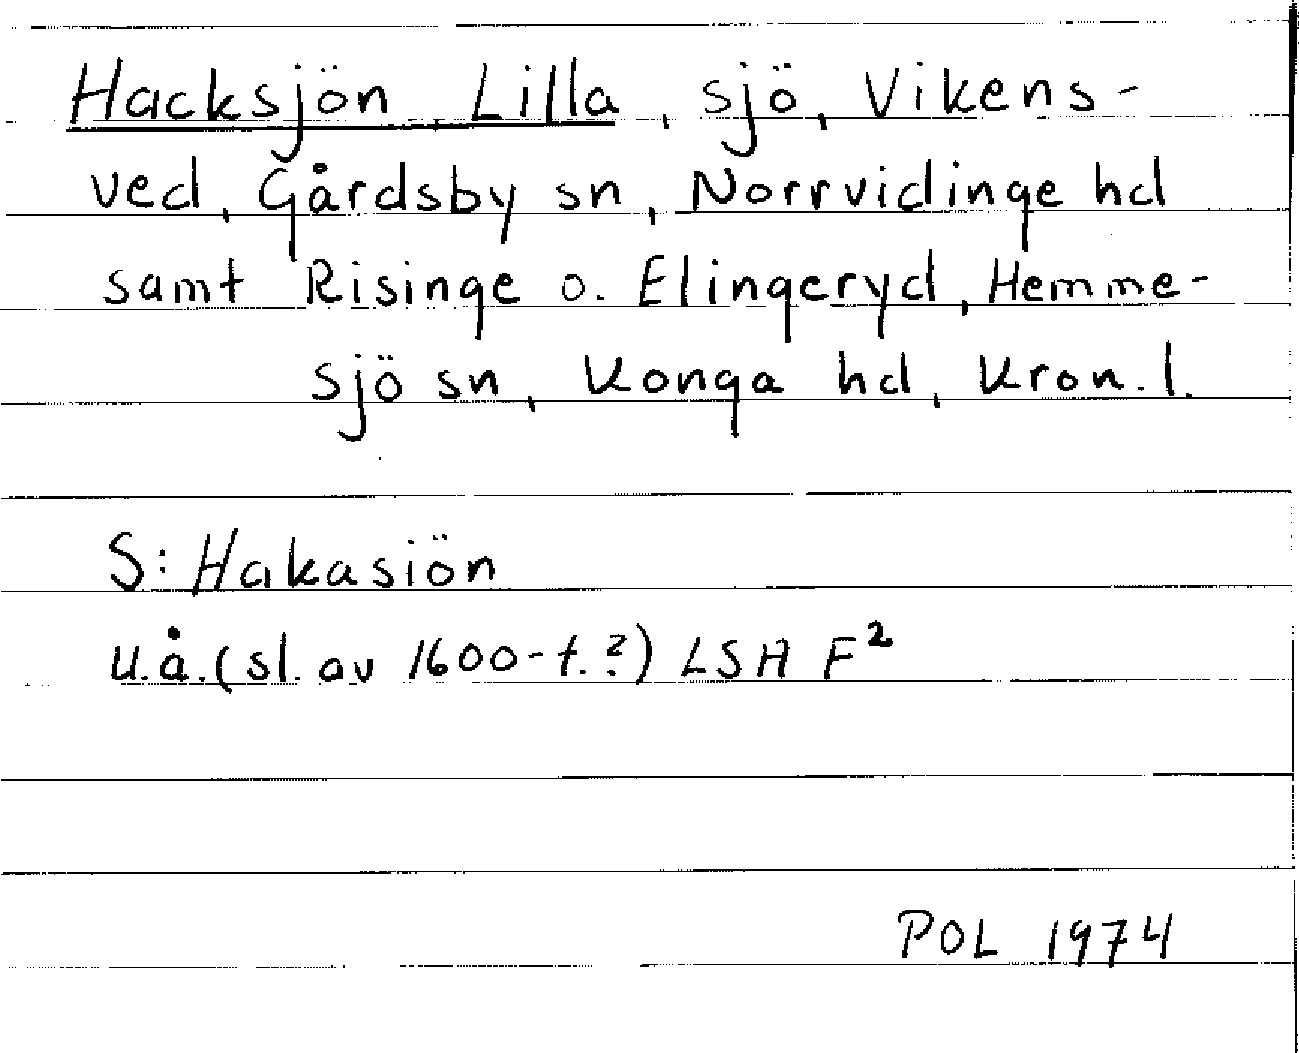 Hacksjön, Lilla, sjö, Vikens-
ved, Gårdsby sn, Norrvidinge hd
samt Risinge o. Elingeryd, Hemme-
sjö sn, Konga hd, Kron. l.
S: Hakasiön
u.å. (sl. av 1600-t.?) LSA F²
POL 1974